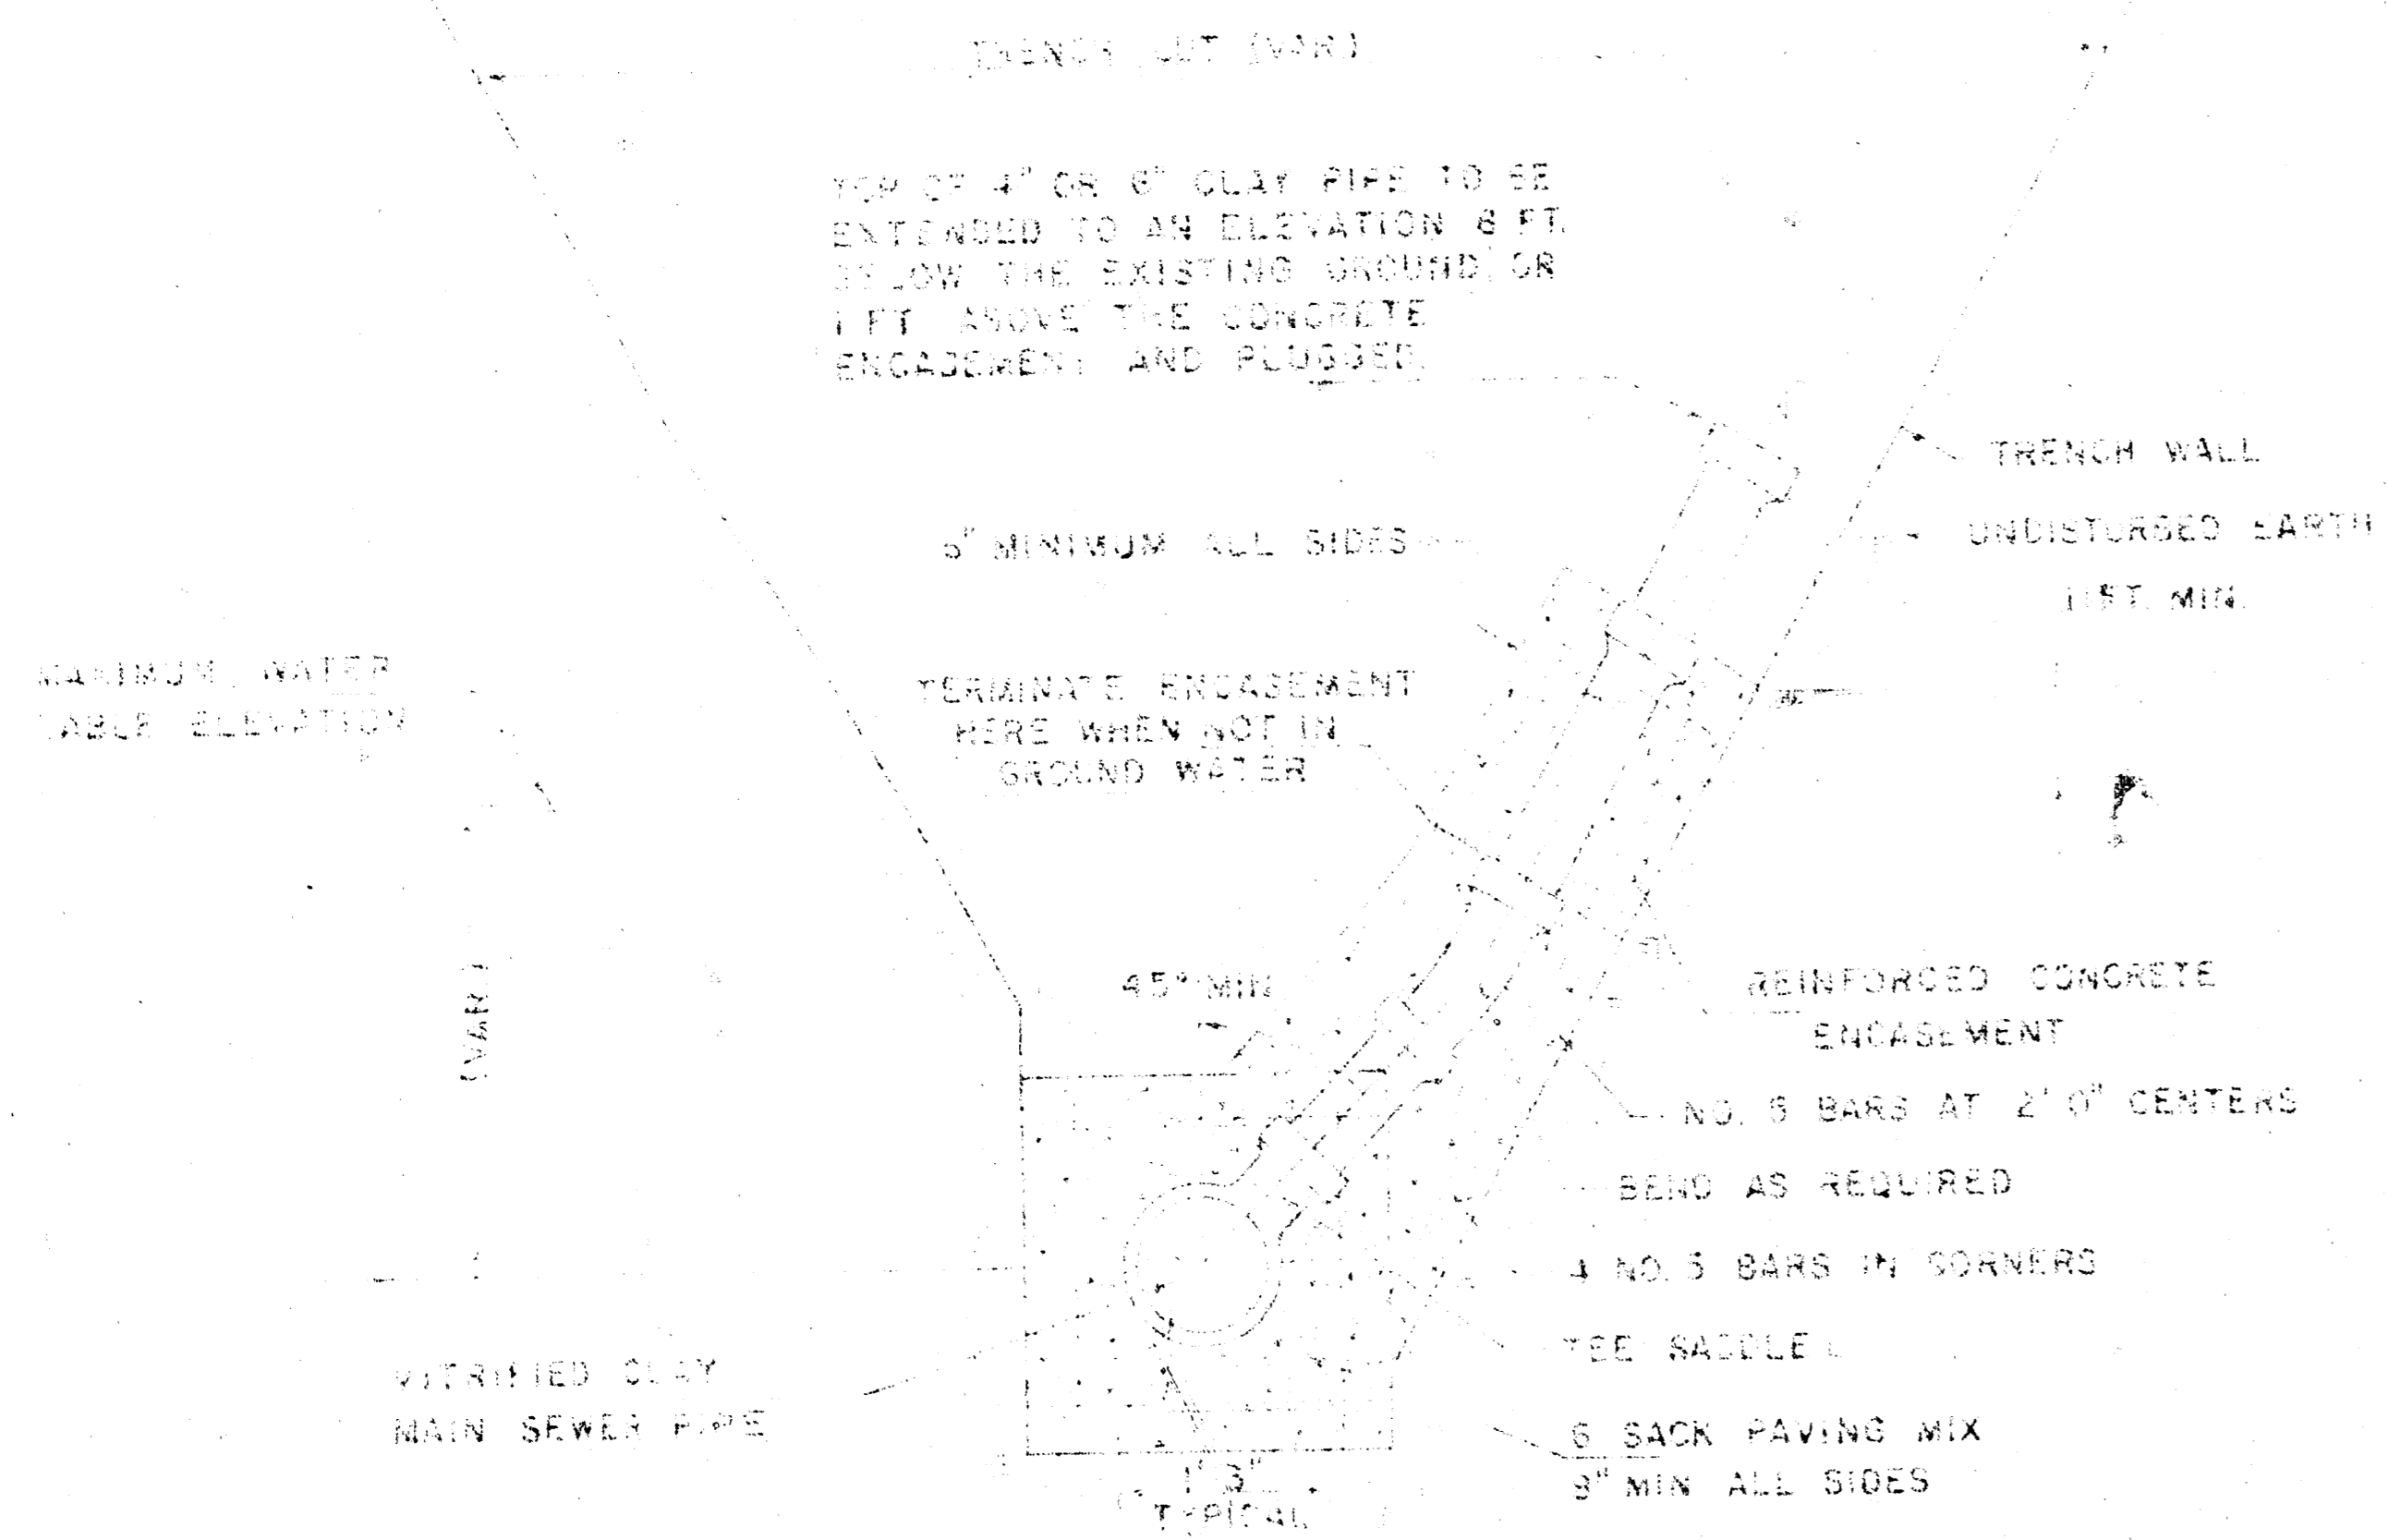 TRENCH CUT (VAR.)
TOP OF 4" OR 6" CLAY PIPE TO BE
EXTENDED TO AN ELEVATION 8 FT.
BELOW THE EXISTING GROUND OR
1 FT ABOVE THE CONCRETE
ENCASEMENT AND PLUGGED.
TRENCH WALL
6" MINIMUM ALL SIDES
UNDISTURBED EARTH
1 FT. MIN.
MAXIMUM WATER
TABLE ELEVATION
TERMINATE ENCASEMENT
HERE WHEN NOT IN
GROUND WATER
(VAR.)
45° MIN.
REINFORCED CONCRETE
ENCASEMENT
BARS AT 2' 0" CENTERS
BEND AS REQUIRED
4 NO. 5 BARS IN CORNERS
TEE SADDLE
VITRIFIED CLAY
MAIN SEWER PIPE
6 SACK PAVING MIX
MIN ALL SIDES
TYPICAL